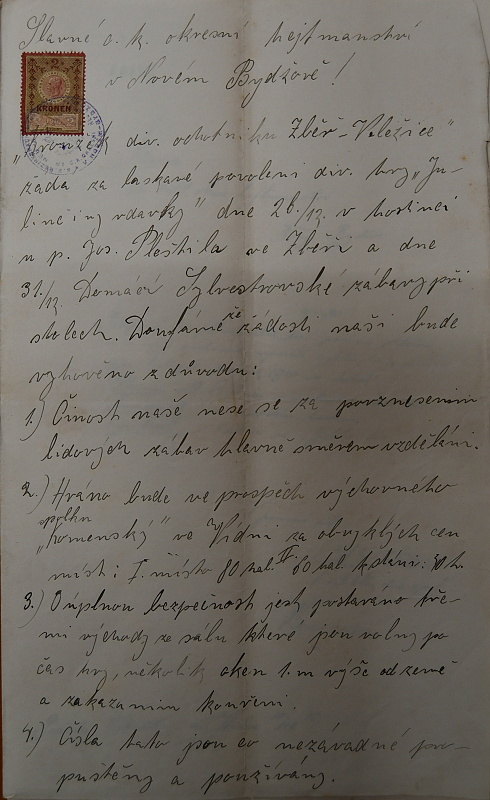 Slavné c. k. okresní hejtmanství
v Novém Bydžově!
2
KRONEN
"Kroužek div. ochotníku Zběř-Vležice"
žádá za laskavé povolení div. hry "Ju-
linčiny vdavky" dne 26./12. v hostinci
u p. Jos. Pleštila ve Zběři a dne
31./12. Domácí Sylvestrovské zábavy při
stolech. Doufáme že žádosti naši bude
vyhověno z důvodu:
1.) Činost naše nese se za povznesením
lidových zábav hlavně směrem vzdělání.
2.) Hráno bude ve prospěch výchovného
spolku
"Komenský" ve Vídni za obvyklých cen
míst: I. místo 80 hal. II. 60 hal. k stání: 30 h.
3.) O úplnou bezpečnost jest postaráno tře-
mi východy ze sálu které jsou volny po
čas hry, několik oken 1. m výše od země
a zakazaním kouření.
4.) Čísla tato jsou co nezávadné pro-
puštěny a používány.